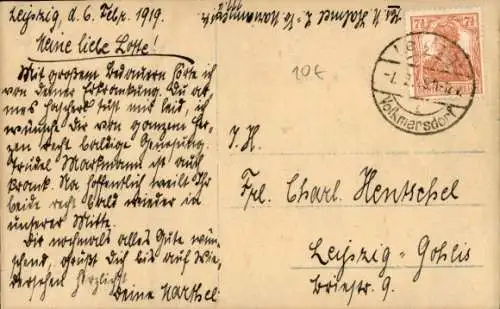 Leipzig, d. 6. Febr. 1919.
Meine liebe Lotte!
Mit großem Bedauern hörte ich
von deiner Erkrankung. Du ar-
mes tust mir leid, ich
wünsche dir von ganzem Her-
zen recht baldige Genesung.
Trudel Markmann ist auch
krank. Na hoffentlich weilt Ihr
beide recht bald wieder in
unserer Mitte.
Dir nochmals alles Gute wün-
schend, grüßt dich bis auf Wie-
dersehen herzlichst
Deine
10€
7½ 7½
Volkmarsdorf
I. H.
Frl. Charl. Hentschel
Leipzig-Gohlis
Briestr. 9.